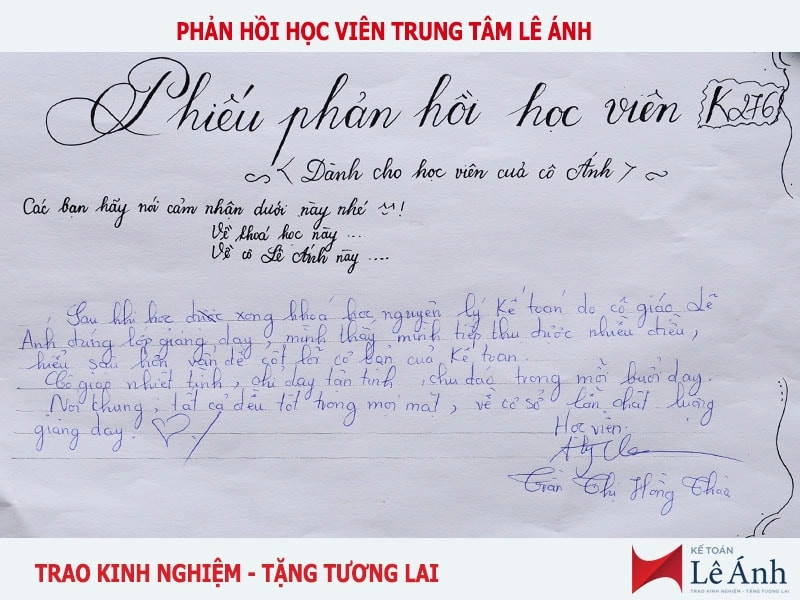 PHẢN HỒI HỌC VIÊN TRUNG TÂM LÊ ÁNH
Phiếu phản hồi học viên K276
< Dành cho học viên cuả cô Ánh >
Các bạn hãy nói cảm nhận dưới này nhé !
Về khoá học này ...
Về cô Lê Ánh này ....
Sau khi học xong khoá học nguyên lý Kế toán do cô giáo Lê
Ánh đứng lớp giảng dạy, mình thấy mình tiếp thu được nhiều điều,
hiểu sâu hơn vấn đề cốt lõi cơ bản của Kế toán.
Cô giáo nhiệt tình, chỉ dạy tận tình, chu đáo trong mỗi buổi dạy.
Nói chung, tất cả đều tốt trong mọi mặt, về cơ sở lẫn chất lượng
giảng dạy.
Học viên
Trần Thị Hồng
TRAO KINH NGHIỆM - TẶNG TƯƠNG LAI
KẾ TOÁN
Lê Ánh
TRAO KINH NGHIỆM - TẶNG TƯƠNG LAI